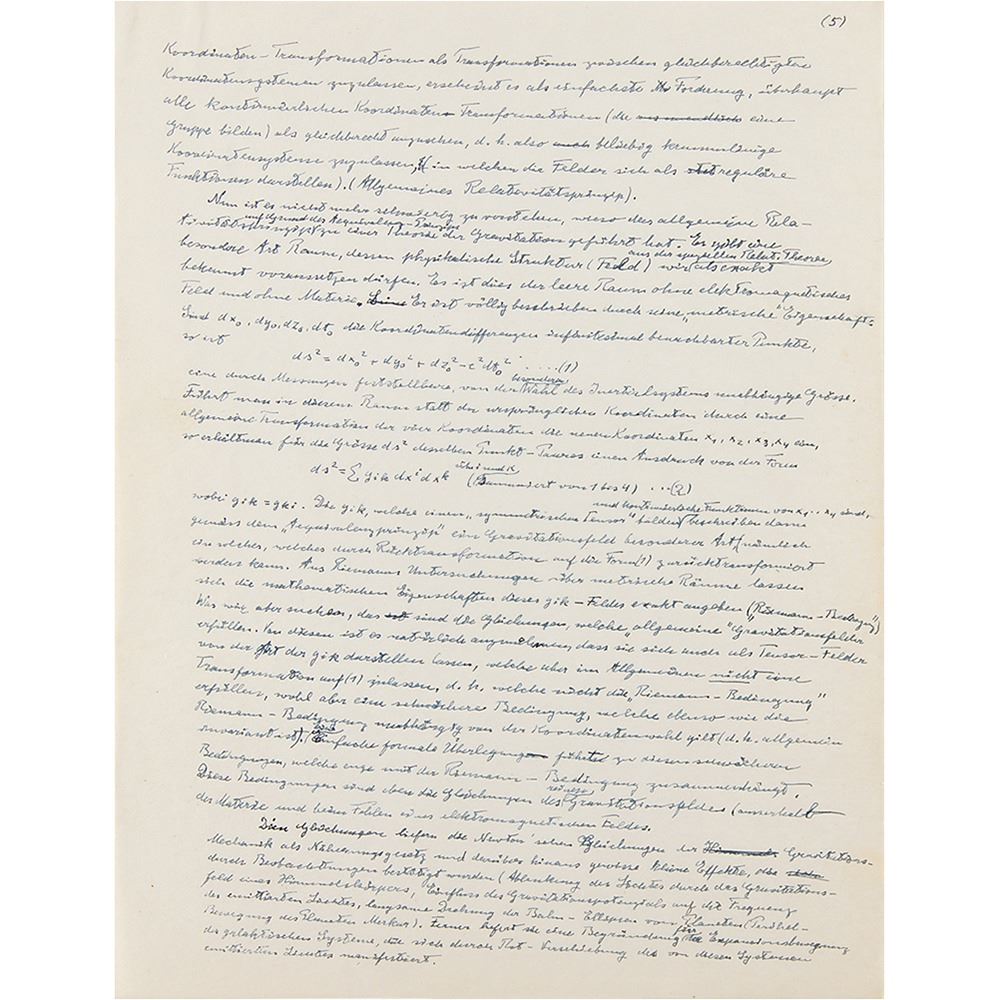 (5)
Koordinaten-Transformationen als Transformationen zwischen gleichberechtigten
Koordinatensystemen zuzulassen, erscheint es als einfachste Forderung, überhaupt
alle kontinuierlichen Koordinaten Transformationen (die eine
Gruppe bilden) als gleichberecht anzusehen, d. h. also beliebig krummlinige
Koordinatensysteme zuzulassen, in welchen die Felder sich als reguläre
Funktionen darstellen). (Allgemeines Relativitätsprinzip).
Nun ist es nicht mehr schwierig zu verstehen, wieso das allgemeine Rela-
auf Grund des Aequivalenz-Prinzips
tivitätsprinzip zu einer Theorie der Gravitation geführt hat. Es gibt eine
aus der speziellen Relat. Theorie
besondere Art Raum, dessen physikalische Struktur (Feld) wir als exakt
bekannt voraussetzen dürfen. Es ist dies der leere Raum ohne elektromagnetisches
Feld und ohne Materie. Er ist völlig beschrieben durch seine „metrische" Eigenschaft:
Sind dx₀, dy₀, dz₀, dt₀ die Koordinatendifferenzen infinitesimal benachbarter Punkte,
so ist
ds² = dx₀² + dy₀² + dz₀² - c²dt₀² .....(1)
besonderen
eine durch Messungen feststellbare, von der Wahl des Inertialsystems unabhängige Grösse.
Führt man in diesem Raume statt der ursprünglichen Koordinaten durch eine
allgemeine Transformation der vier Koordinaten die neuen Koordinaten x₁, x₂, x₃, x₄ ein,
so erhält man für die Grösse ds² desselben Punkt-Paares einen Ausdruck von der Form
über i und k
ds² = Σ gik dxⁱ dxᵏ (summiert von 1 bis 4) ...(2)
und kontinuierliche Funktionen von x₁ .. x₄ sind,
wobei gik = gki. Die gik, welche einen „symmetrischen Tensor" bilden beschreiben dann
gemäss dem „Aequivalenzprinzip" ein Gravitationsfeld besonderer Art (nämlich
ein solches, welches durch Rücktransformation auf die Form (1) zurücktransformiert
werden kann. Aus Riemanns Untersuchungen über metrische Räume lassen
sich die mathematischen Eigenschaften dieses gik-Feldes exakt angeben („Riemann-Bedingung")
Was wir aber suchen, das sind die Gleichungen, welche „allgemeine" Gravitationsfelder
erfüllen. Von diesen ist es natürlich anzunehmen, dass sie sich auch als Tensor-Felder
von der Art der gik darstellen lassen, welche aber im Allgemeinen nicht eine
Transformation auf (1) zulassen, d. h. welche nicht die „Riemann-Bedingung"
erfüllen, wohl aber eine schwächere Bedingung, welche ebenso wie die
Riemann-Bedingung unabhängig von der Koordinatenwahl gilt (d. h. allgemein
invariant ist). Eine einfache formale Überlegung führt zu diesen schwächeren
Bedingungen, welche enge mit der Riemann-Bedingung zusammenhängt.
reinen
Diese Bedingungen sind eben die Gleichungen des Gravitationsfeldes (ausserhalb
der Materie und beim Fehlen eines elektromagnetischen Feldes.
Diese Gleichungen liefern die Newton'schen Gleichungen der Gravitations-
Mechanik als Näherungsgesetz und darüber hinaus gewisse kleine Effekte, die
durch Beobachtungen bestätigt wurden (Ablenkung des Lichtes durch das Gravitations-
feld eines Himmelskörpers, Einfluss des Gravitationspotenzials auf die Frequenz
des emittierten Lichtes, langsame Drehung der Bahn-Ellipsen von Planeten (Perihel-
Bewegung des Planeten Merkur). Ferner liefert sie eine Begründung für die Expansionsbewegung
der galaktischen Systeme, die sich durch Rot-Verschiebung des von diesen Systemen
emittierten Lichtes manifestiert.